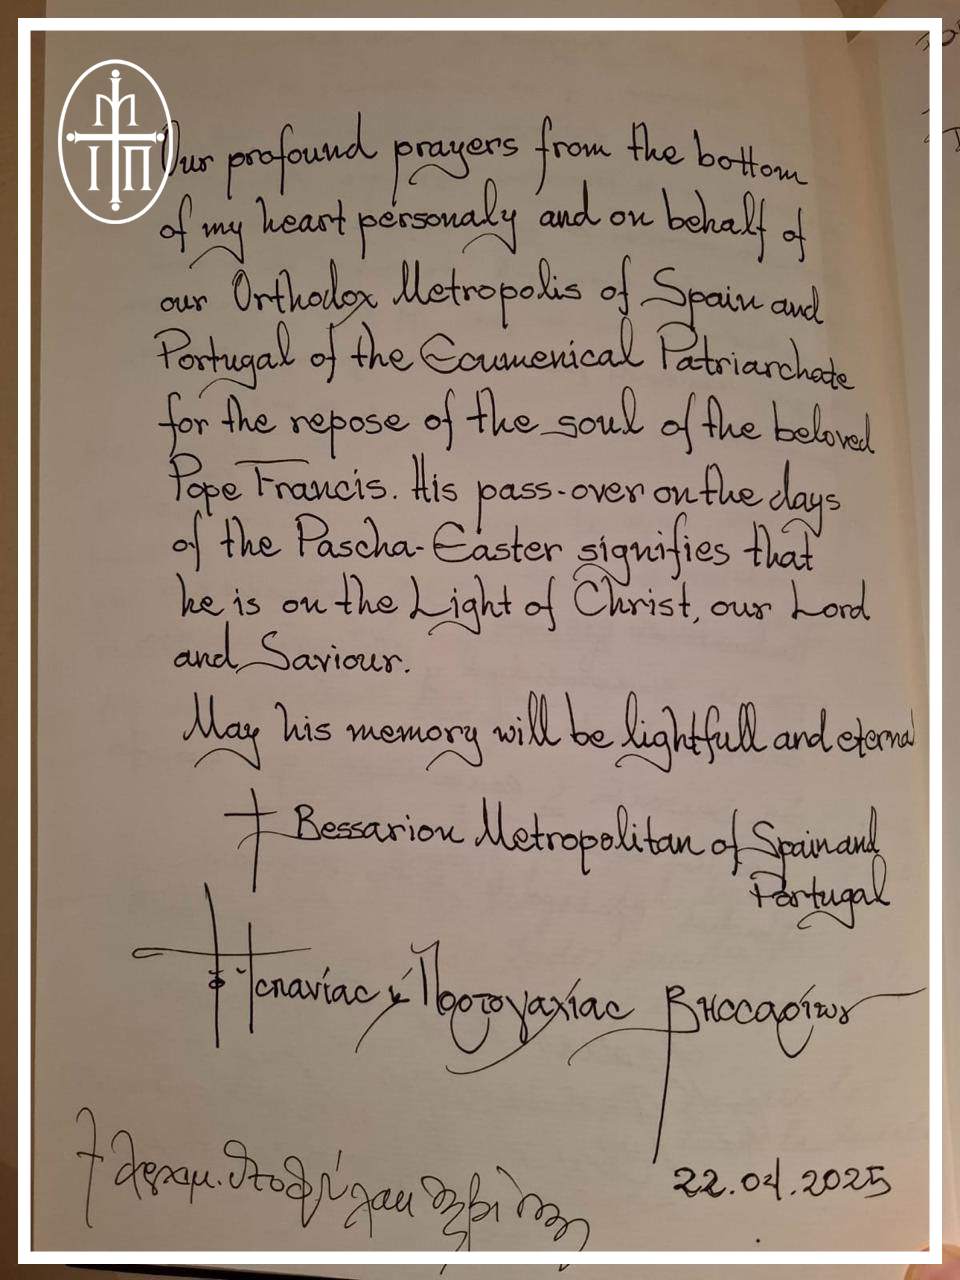 Our profound prayers from the bottom
of my heart personaly and on behalf of
our Orthodox Metropolis of Spain and
Portugal of the Ecumenical Patriarchate
for the repose of the soul of the beloved
Pope Francis. His pass-over on the days
of the Pascha-Easter signifies that
he is on the Light of Christ, our Lord
and Saviour.
May his memory will be lightfull and eternal
† Bessarion Metropolitan of Spain and
Portugal
† Ἱσπανίας κ́ Πορτογαλίας Βησσαρίων
22.04.2025